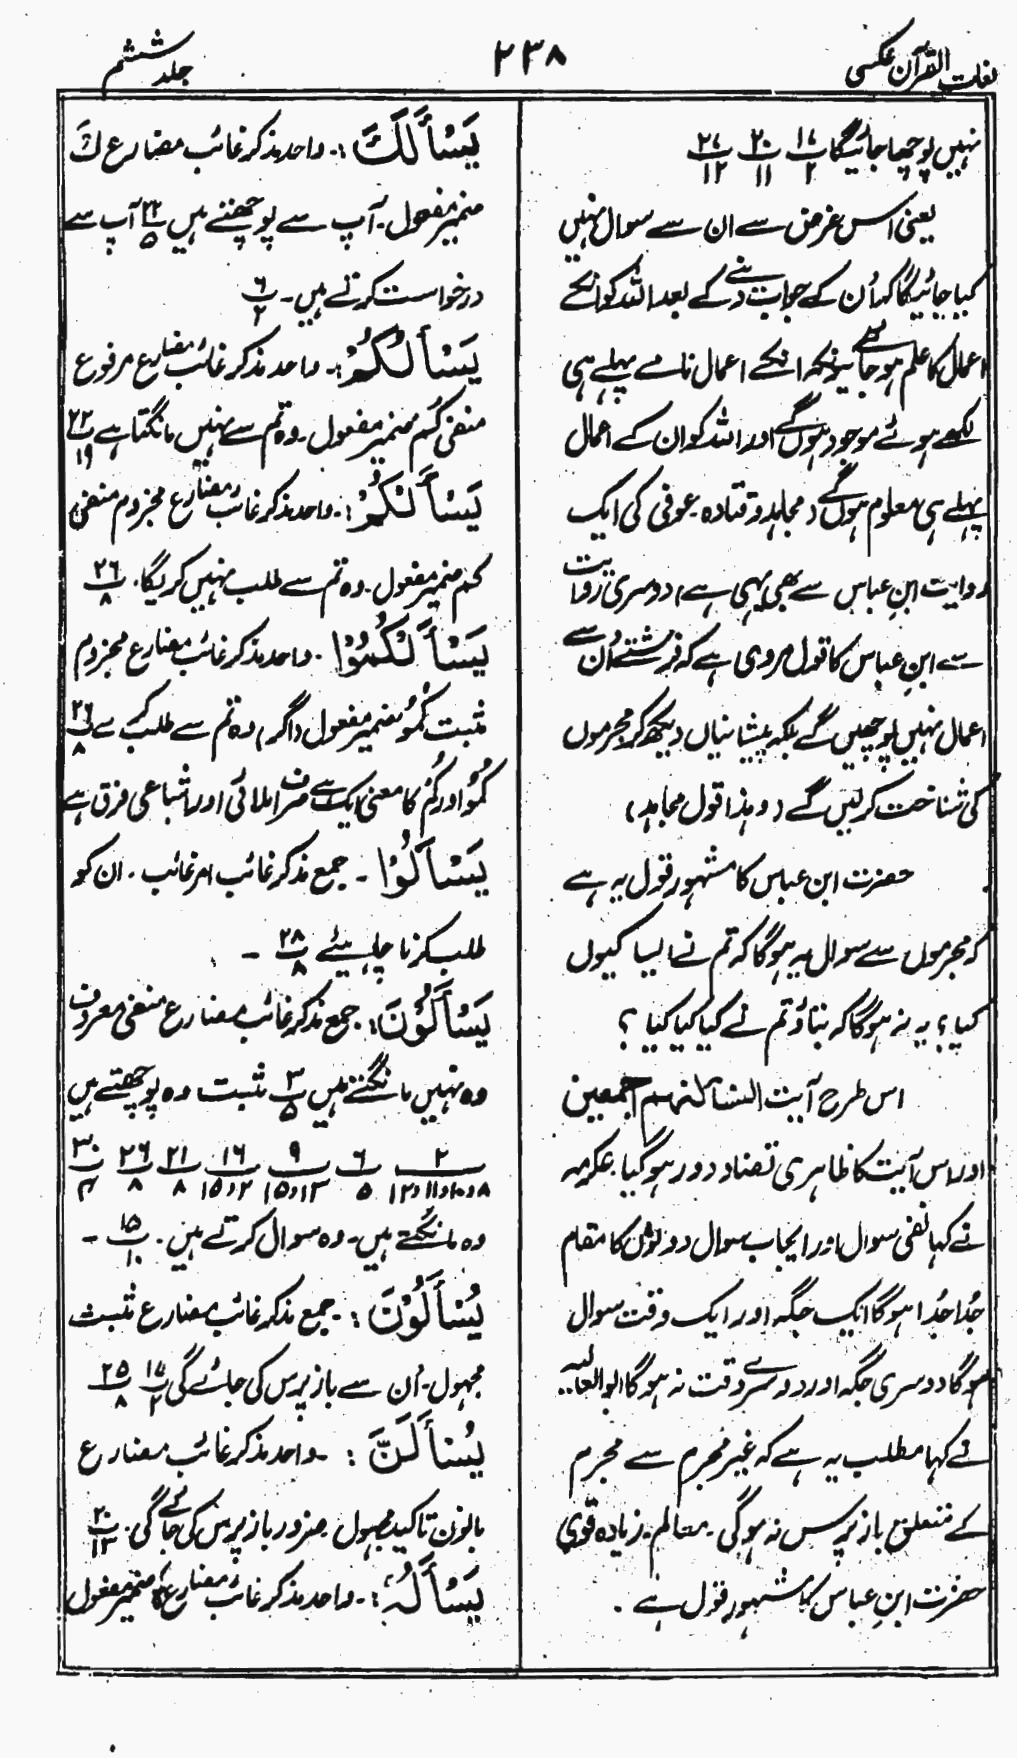 لغات القرآن عکسی
۲۳۸
جلد ششم
نہیں پوچھا جائیگا ۱۷/۲ ۲۰/۱۱ ۲۷/۱۲
یعنی اس غرض سے ان سے سوال نہیں
کیا جائیگا کہ اُن کے جواب دینے کے بعد اللہ کو انکے
اعمال کا علم ہو جائے کیونکہ انکے اعمال نامے پہلے ہی
لکھے ہوئے موجود ہونگے اور اللہ کو ان کے اعمال
پہلے ہی معلوم ہونگے (مجاہد و قتادہ۔ عوفی کی ایک
روایت ابنِ عباس سے بھی یہی ہے) دوسری روایت
سے ابنِ عباس کا قول مروی ہے کہ فرشتے اُن سے
اعمال نہیں پوچھیں گے بلکہ پیشانیاں دیکھ کر مجرموں
کی شناخت کر لیں گے (وہذا قول مجاہد)
حضرت ابن عباس کا مشہور قول یہ ہے
کہ مجرموں سے سوال یہ ہوگا کہ تم نے ایسا کیوں
کیا؟ یہ نہ ہوگا کہ بتاؤ تم نے کیا کیا کیا؟
اس طرح آیت لنسالنہم اجمعین
اور اس آیت کا ظاہری تضاد دور ہوگیا۔ عکرمہ
نے کہا نفی سوال اور ایجاب سوال دونوں کا مقام
جُدا جُدا ہوگا ایک جگہ اور ایک وقت سوال
ہوگا دوسری جگہ اور دوسرے وقت نہ ہوگا ابو العالیہ
نے کہا مطلب یہ ہے کہ غیر مجرم سے مجرم
کے متعلق باز پرس نہ ہوگی۔ معالم۔ زیادہ قوی
حضرت ابنِ عباس کا مشہور قول ہے۔
یَسْأَلُكَ:۔ واحد مذکر غائب مضارع كَ
ضمیر مفعول۔ آپ سے پوچھتے ہیں ۲۲/۵ آپ سے
درخواست کرتے ہیں۔ ۶/۲
یَسْأَلُكُمْ:۔ واحد مذکر غائب مضارع مرفوع
منفی کُم ضمیر مفعول۔ وہ تم سے نہیں مانگتا ہے ۲۲/۱۹
یَسْأَلْكُمْ:۔ واحد مذکر غائب مضارع مجزوم منفی
کم ضمیر مفعول۔ وہ تم سے طلب نہیں کریگا۔ ۲۶/۸
یَسْأَلْكُمُوْا۔ واحد مذکر غائب مضارع مجزوم
مثبت کُمُو ضمیر مفعول (اگر) وہ تم سے طلب کرے ۲۶/۸
کُمُو اور کُم کا معنی ایک ہے صرف املائی اور اشباعی فرق ہے
یَسْأَلُوْا۔ جمع مذکر غائب امر غائب۔ ان کو
طلب کرنا چاہیئے ۲۸/۸۔
یَسْأَلُوْنَ:۔ جمع مذکر غائب مضارع منفی معروف
وہ نہیں مانگتے ہیں ۳/۵ مثبت وہ پوچھتے ہیں
۲/۸و۱۰و۱۱و۱۲ ۶/۵ ۹/۱۳و۱۵ ۱۶/۲و۱۵ ۲۱/۸ ۲۶/۸ ۳۰/۳
وہ مانگتے ہیں۔ وہ سوال کرتے ہیں۔ ۱۵/۱۰۔
یُسْأَلُوْنَ:۔ جمع مذکر غائب مضارع مثبت
مجہول۔ اُن سے باز پرس کی جائے گی ۱۷/۲ ۲۵/۸
یُسْأَلَنَّ:۔ واحد مذکر غائب مضارع
بانون تاکید مجہول۔ ضرور باز پرس کی جائے گی۔ ۲۰/۱۳
یَسْأَلُہٗ:۔ واحد مذکر غائب مضارع ہٗ ضمیر مفعول